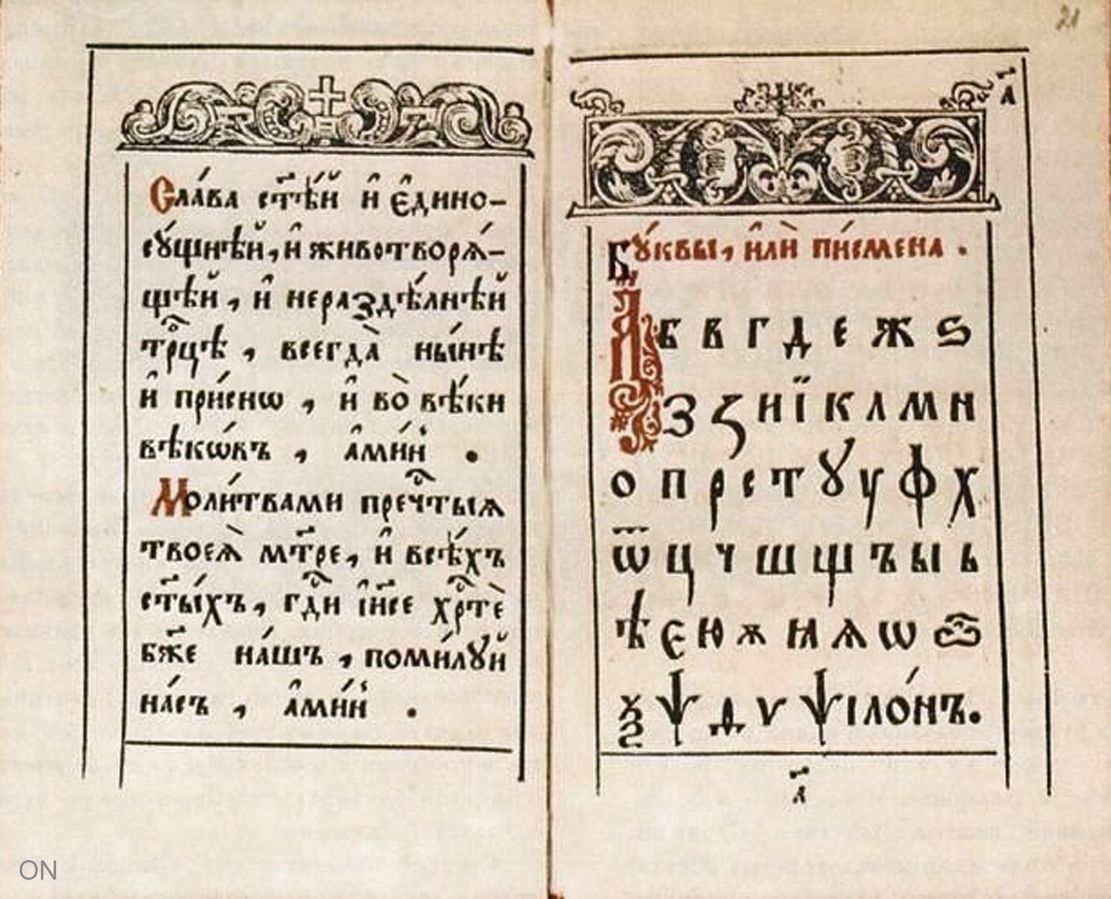 Сла́ва ст҃ѣ́й и҆ є҆дино-
сꙋ́щнѣй, и҆ животворѧ́-
щѣй, и҆ нераздѣ́лнѣй
трⷪ҇цѣ, всегда̀ ны́нѣ
и҆ при́снѡ, и҆ во̀ вѣ́ки
вѣкѡ́въ, а҆ми́нь.
Моли́твами пречⷭ҇тыѧ
твоеѧ̀ мт҃ре, и҆ всѣ́хъ
ст҃ы́хъ, гдⷭ҇и і҆и҃се хрⷭ҇тѐ
бж҃е на́шъ, поми́лꙋй
на́съ, а҆ми́нь.
21
а҃
Бꙋ́квы, и҆лѝ пи́смена.
А Б В Г Д Е Ж Ѕ
З Ꙁ И Ї К Л М Н
О П Р С Т Ꙋ У Ф Х
Ѿ Ц Ч Ш Щ Ъ Ы Ь
Ѣ Є Ю Ѫ Ꙗ Ѧ Ѡ Ѽ
Ѯ Ѱ Ѳ Ѵ Ѱіло́нъ.
а҃
ON